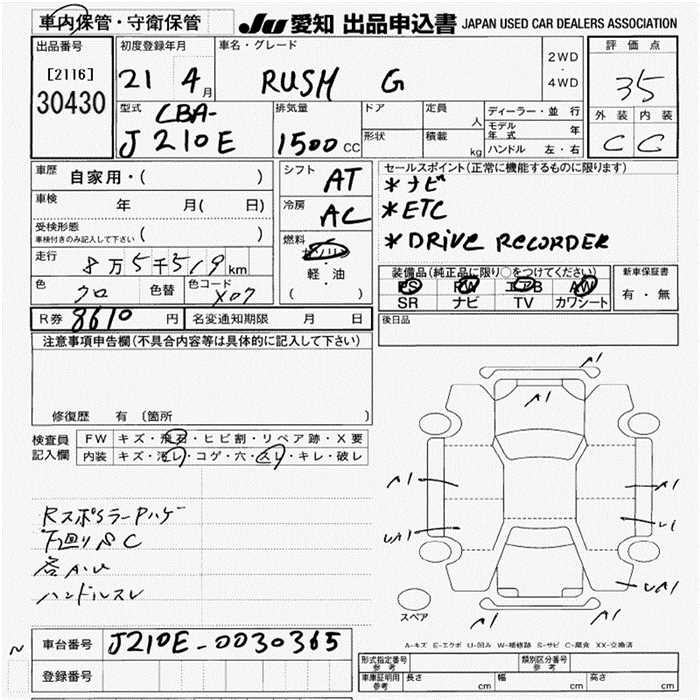 車内保管・守衛保管
JU 愛知 出品申込書 JAPAN USED CAR DEALERS ASSOCIATION
出品番号
[2116]
30430
初度登録年月
21 4月
車名・グレード
RUSH G
2WD
・
4WD
評価点
35
外装 内装
C C
型式
CBA-
J210E
排気量
1500 CC
ドア
形状
定員
人
積載
kg
ディーラー・並行
モデル年式 年
ハンドル 左・右
車歴
自家用・( )
車検 年 月( 日)
受検形態
車検付きのみ記入して下さい ( )
走行
8万5千519km
色
クロ
色替
色コード
X07
シフト
AT
冷房
AC
燃料
ガソリン
軽・油
( )
セールスポイント(正常に機能するものに限ります)
*ナビ
*ETC
*DRIVE RECORDER
装備品(純正品に限り○をつけてください)
PS PW エアB AW
SR ナビ TV カワシート
新車保証書
有・無
R券 8610 円
名変通知期限 月 日
後日品
注意事項申告欄(不具合内容等は具体的に記入して下さい)
修復歴 有 〔箇所
検査員
記入欄
FW キズ・飛石・ヒビ割・リペア跡・X要
内装 キズ・汚レ・コゲ・穴・スレ・キレ・破レ
RスポイラーPハゲ
下廻りSC
各AU
ハンドルスレ
A1
A1
A1
A1
UA1
U1
UA1
A1
A1
スペア
A-キズ E-エクボ U-凹み W-補修跡 S-サビ C-腐食 XX-交換済
車台番号 J210E-0030365
登録番号
形式指定番号
参考
類別区分番号
参考
車庫証明用
参考
長さ cm
幅 cm
高さ cm